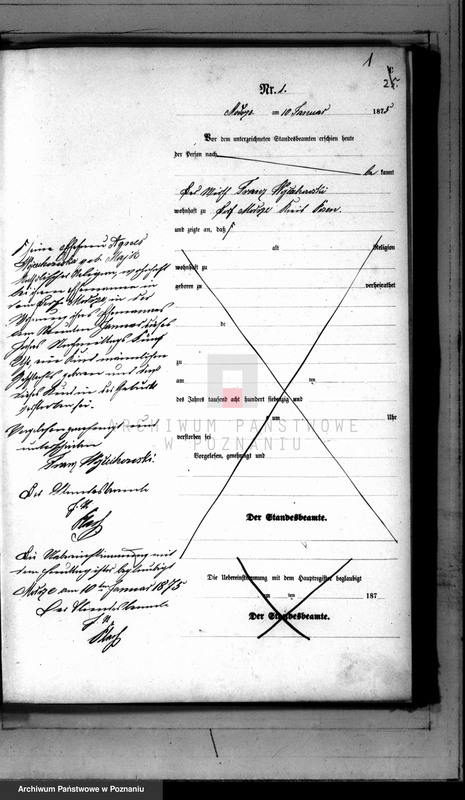 1
25.
Nr. 1.
am 10 Januar 1875
Vor dem unterzeichneten Standesbeamten erschien heute
der Person nach
be kannt
Franz Wojciechowski
wohnhaft zu
und zeigte an, daß
alt Religion
wohnhaft zu
geboren zu verheirathet
de
zu
am ten
des Jahres tausend acht hundert siebenzig und
um Uhr
verstorben sei
Vorgelesen, genehmigt und
Der Standesbeamte.
Die Uebereinstimmung mit dem Hauptregister beglaubigt
am ten 187
Der Standesbeamte.
seine Ehefrau Agnes
geb.
katholischer Religion, wohnhaft
bei ihrem Ehemanne in
in der
Wohnung ihres Ehemannes
am Januar dieses
Jahres Nachmittags fünf
Uhr ein Kind männlichen
Geschlechts geboren und daß
dieses Kind in der Geburt
verstorben sei.
Vorgelesen genehmigt und
unterschrieben
Franz Wojciechowski
Der Standesbeamte
Die Uebereinstimmung mit
dem Hauptregister beglaubigt
am 10ten Januar 1875
Der Standesbeamte
ARCHIWUM PAŃSTWOWE
W POZNANIU
Archiwum Państwowe w Poznaniu